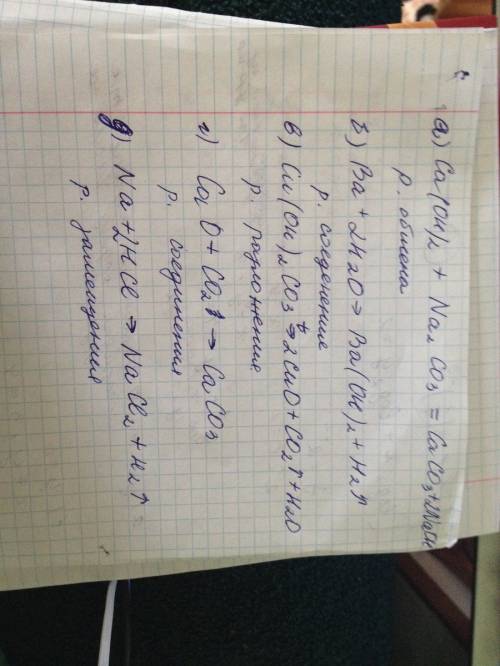 а) Ca(OH)₂ + Na₂CO₃ = CaCO₃ + 2NaOH
р. обмена
б) Ba + 2H₂O → Ba(OH)₂ + H₂↑
р. соеденение
в) Cu(OH)₂CO₃ t⇒ 2CuO + CO₂↑ + H₂O
р. разложения
г) CaO + CO₂↑ → CaCO₃
р. соединения
д) Na + 2HCl → NaCl₂ + H₂↑
р. замещения